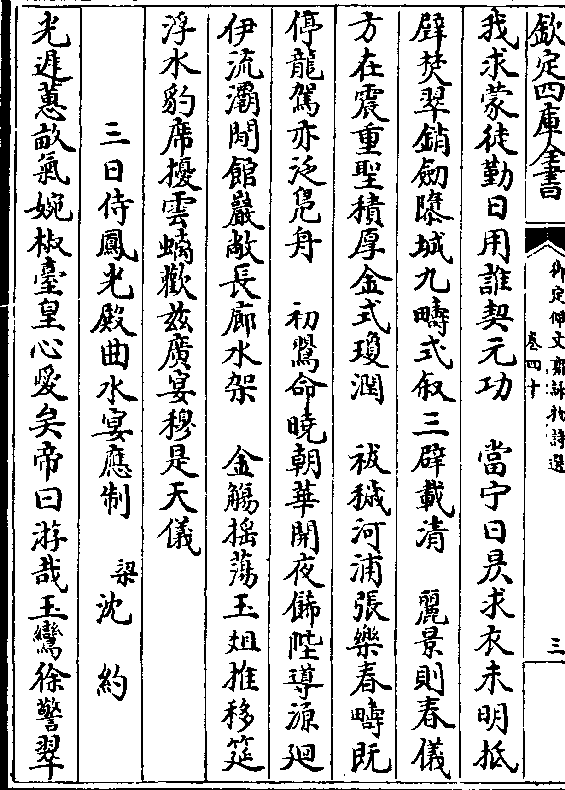 欽定四庫全書
御定佩文齋詠物詩選
卷四十
三
我求蒙徒勤日用誰契元功　當宁日昃求衣未明抵
璧焚翠銷劒隳城九疇式叙三辟載清　麗景則春儀
方在震重聖積厚金式瓊潤　祓穢河浦張樂春疇既
停龍駕亦泛鳧舟　初鶯命曉朝華開夜飾陛導源廻
伊流灞閒館巖敞長廊水架　金觴搖蕩玉俎推移筵
浮水豹席擾雲螭歡兹廣宴穆是天儀
三日侍鳳光殿曲水宴應制　梁沈約
光遲蕙畝氣婉椒臺皇心愛矣帝曰游哉玉鸞徐警翠